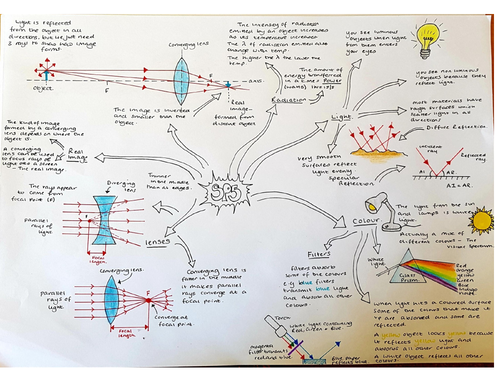 Light is reflected
from the object in all
directions, but we just need
2 rays to show how image
forms.
Converging lens
object
F
F
axis
Real
image
formed from
distant object
The image is inverted
and smaller than the
object.
The intensity of radiation
emitted by an object increases
as its temperature increases
The λ of radiation emitted also
change with temp.
The higher the λ the lower the
temp.
The amount of
energy transferred in
a time: Power
(watts) 1W = 1J/s
Radiation
you see luminous
objects when light
from them enters
your eyes
you see non luminous
objects because they
reflect light.
most materials have
rough surfaces and
scatter light in all
directions
Diffuse Reflection
Light
Very smooth
surfaces reflect
light evenly
Specular
Reflection
Incident
ray
Reflected
ray
AI
AR
AI = AR.
The kind of image
formed by a converging
lens depends on where the
object is.
A converging
lens can be used
to focus rays of
light on a screen
- The real image
Real
Image
SP5
Thinner
in the middle
than at edges.
The rays appear
to come from
focal point (F)
Diverging
lens
Parallel
rays of
light.
F
Focal
length
lenses
Converging lens is
fatter in the middle
it makes parallel
rays converge at a
focal point.
Converging lens
Parallel
rays of
light
Focal
length
Converge at
focal point.
Colour
The light from the sun
and lamps is white light.
Actually a mix of
different colours - The
visible spectrum
White
light
Glass
Prism
Red
Orange
Yellow
Green
Blue
Indigo
Violet
Filters
filters absorb
some of the colours
e.g blue filters
transmit blue light
and absorb all other
colours.
Torch
white light containing
Red, Green + Blue
magenta
filter transmits
red and blue
Blue paper reflects blue
When light hits a coloured surface
some of the colours that make it
up are absorbed and some are
reflected.
A yellow object looks yellow because
it reflects yellow light and
absorbs all other colours.
A white object reflects all other
colours.